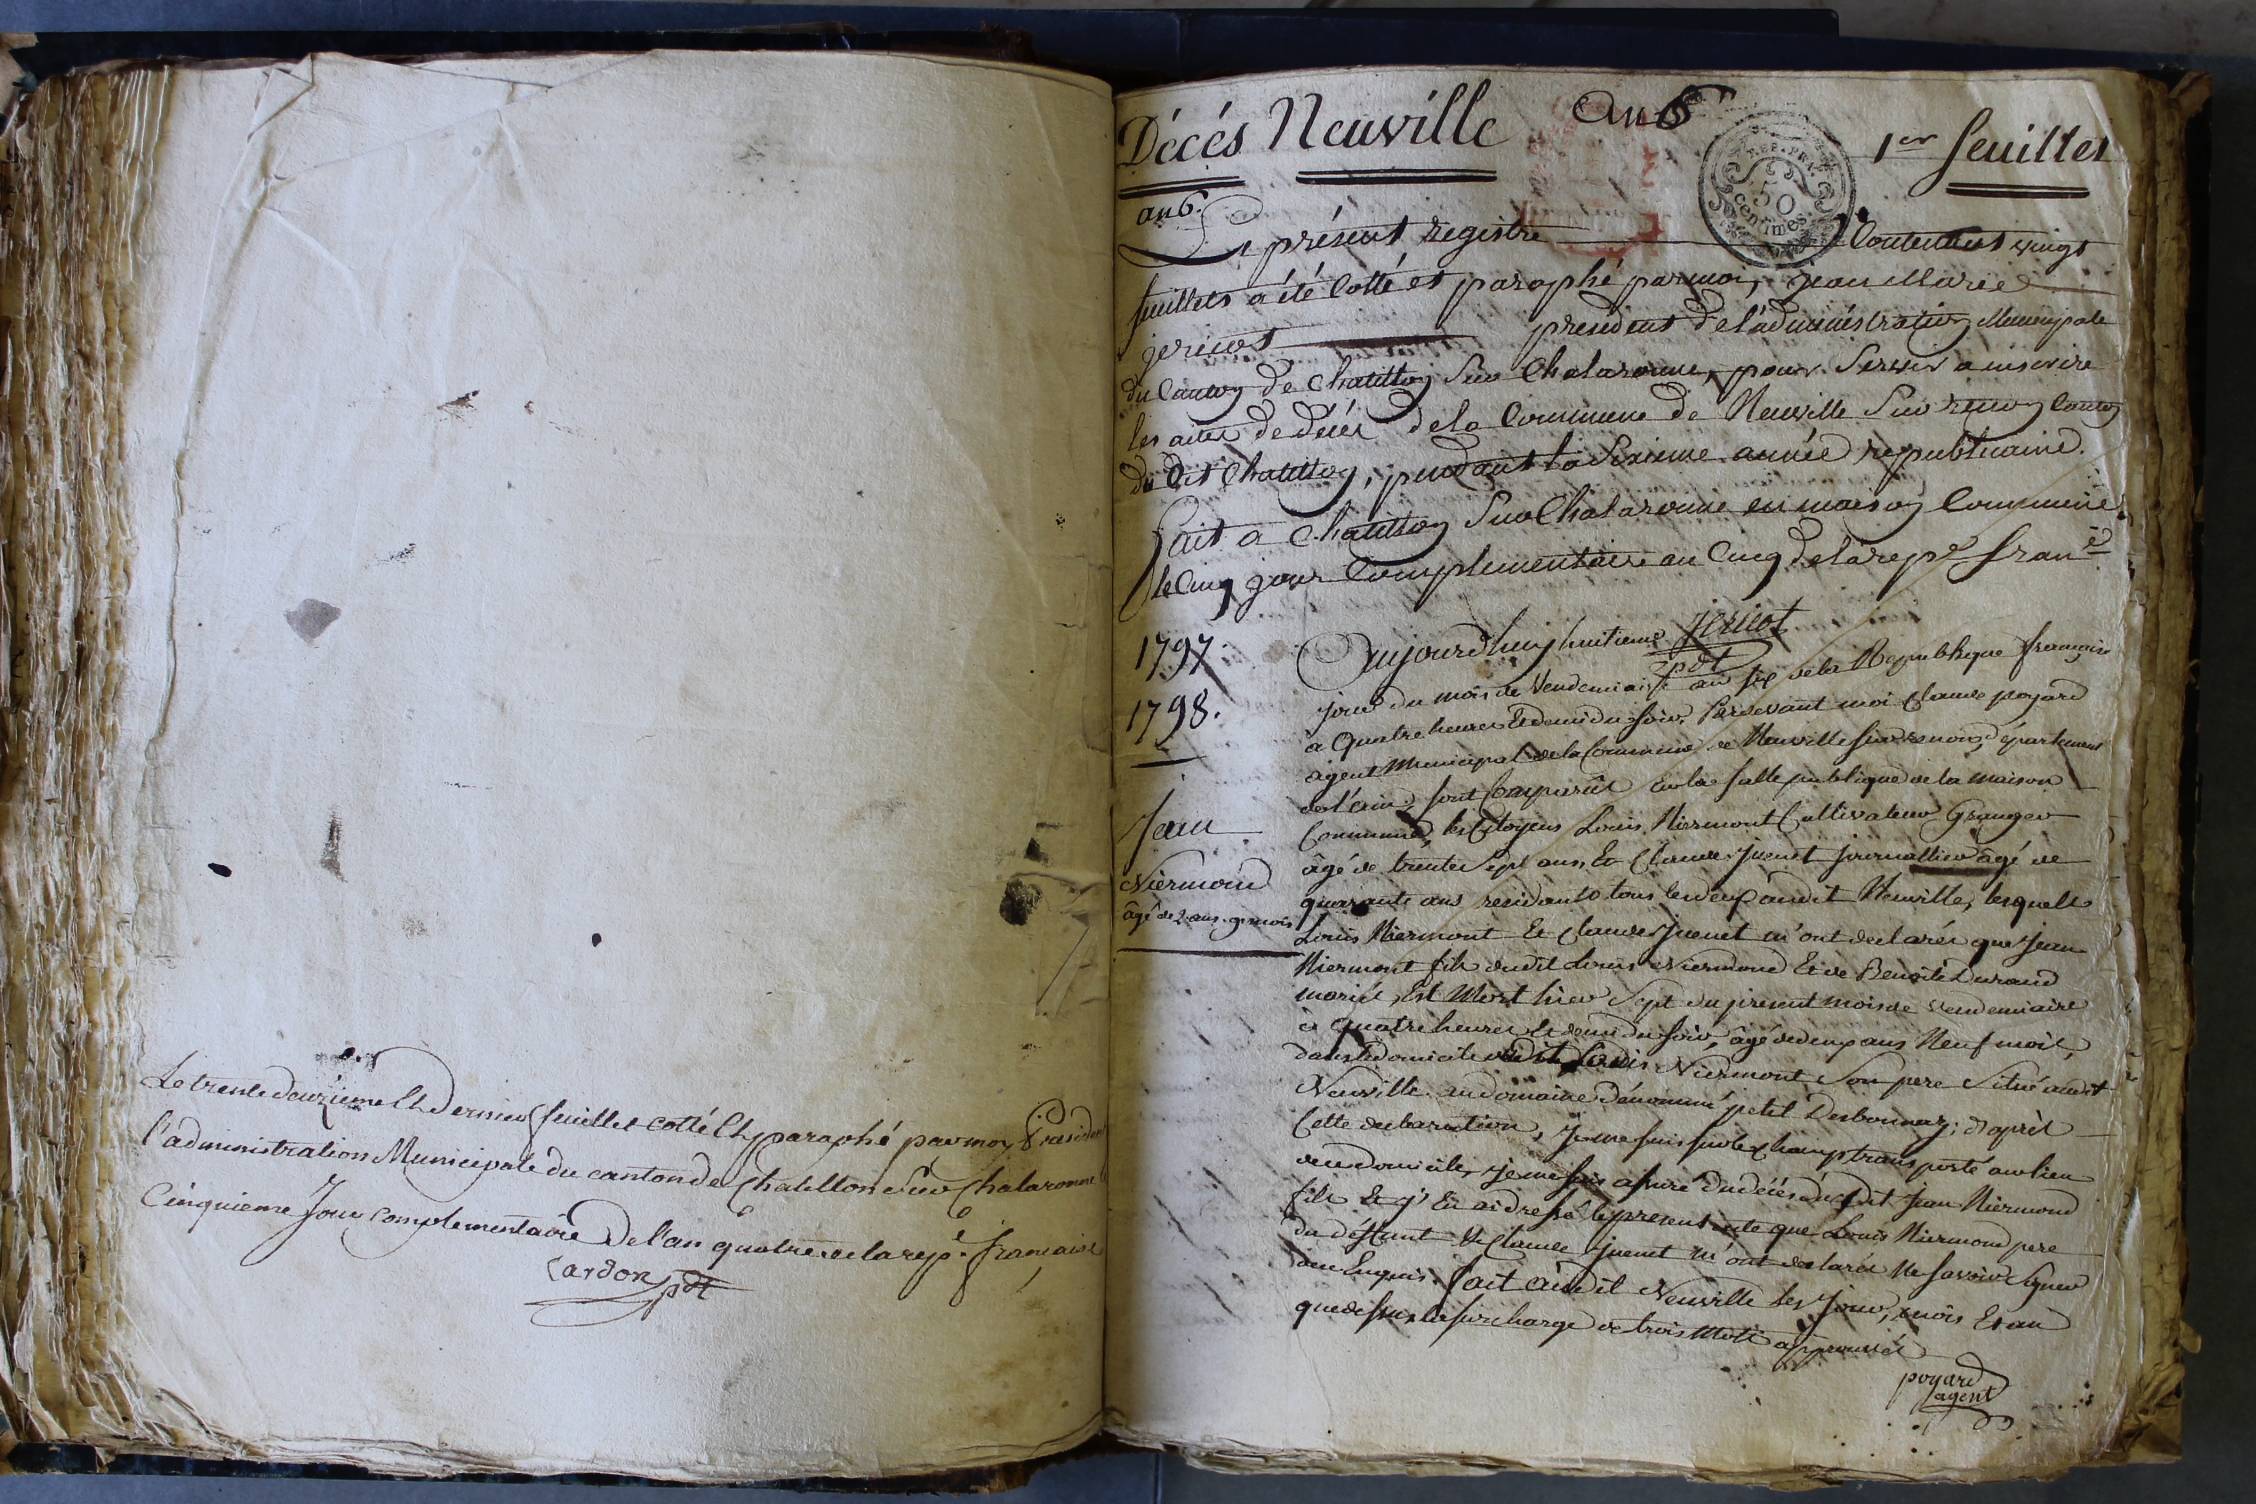 Le trente deuxieme Et Dernier feuillet cotté Et paraphé par moy Président
l'administration Municipale du canton de Chatillon Sur Chalaronne
Cinquieme Jour complementaire De l'an quatre de la rep.e française
Cardon pdt
Décés Neuville an 6 1er feuillet
REP. FRA. 50 centimes.
an 6.
Le présent registre Contenant vingt
feuillets a été Cotté et paraphé par moi, jean Marie
jericot président de l'administration Municipale
du Canton de Chatillon Sur Chalaronne, pour Servir a inscrire
les actes de décés de la Commune de Neuville Sur renon Canton
du dit Chatillon, pendant la Sixieme année republicaine.
fait a Chatillon Sur Chalaronne en maison Commune
le Cinq jour Complementaire an Cinq de la rep.e franc.e
jericot
pdt
1797
1798.
Jean
Niermond
âgé de 2 ans. 9 mois
Aujourdhuy huitieme
jour du mois de Vendemiaire an six de la Republique française
a Quatre heures Et demi du soir. Pardevant moi Claude poyard
agent Municipal de la Commune de Neuville sur renon, département
de l'ain, sont Comparût en la salle publique de la maison
Commune, les Citoyens Louis Niermont Cultivateur Granger
âgé de trente Sept ans, Et Claude Juenet journallier âgé de
quarante ans residants tous les deux audit Neuville, lesquels
Louis Niermont Et Claude Juenet m'ont declarés que Jean
Niermont fils dudit Louis Niermond Et de Benoite Durand
mariés, Est Mort hier Sept du present mois de vendemiaire
à Quatre heures Et demi du soir, âgé de deux ans Neuf mois,
dans le domicile dudit Louis Niermont Son pere Situé audit
Neuville au domaine Dénommé petit Desbonnaz; d'après
Cette declaration, Je me suis sur le Champ transporté au lieu
de ce domicile, je me suis assuré du décés du dit Jean Niermond
fils Et j'En ai dressé le present acte que Louis Niermond pere
du déffunt Et Claude Juenet m'ont declarés Ne savoir Signer
de ce Enquis. fait audit Neuville les Jour, mois Et an
que dessus, la surcharge de trois Mots approuvés
poyard
agent